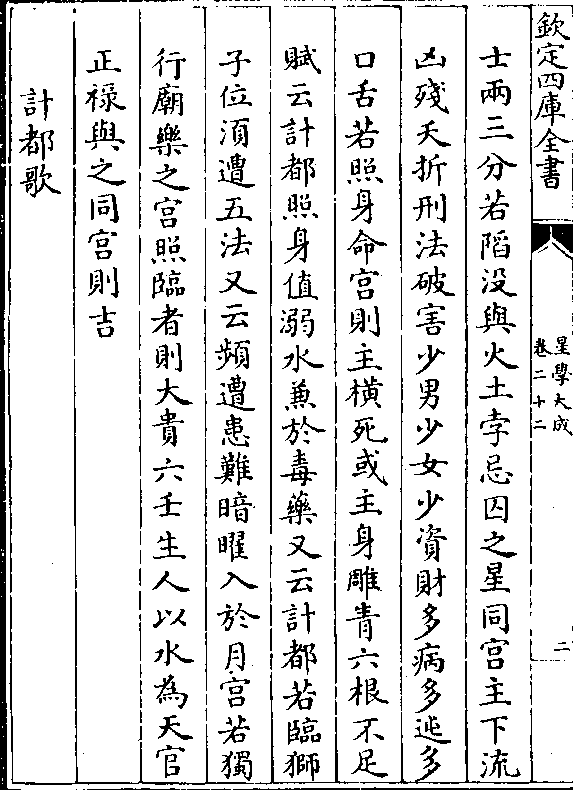 欽定四庫全書
星學大成
卷二十二
二
士兩三分若䧟没與火土孛忌囚之星同宫主下流
凶殘夭折刑法破害少男少女少資財多病多迍多
口舌若照身命宫則主橫死或主身雕青六根不足
賦云計都照身值溺水兼於毒藥又云計都若臨獅
子位湏遭五法又云頻遭患難暗曜入於月宫若獨
行廟樂之宫照臨者則大貴六壬生人以水為天官
正祿與之同宫則吉
計都歌